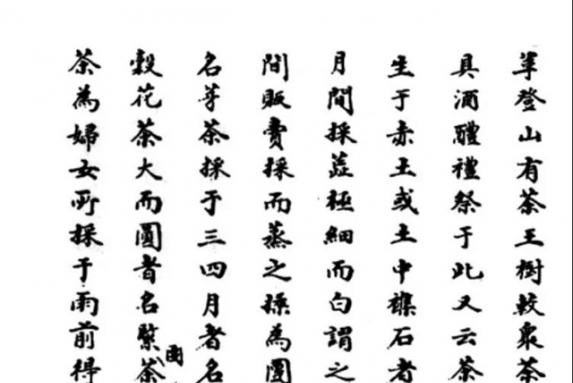 筆登山有茶王樹較衆茶
具酒醴禮祭于此又云茶
生于赤土或土中雜石者
月間採蕊極細而白謂之
間販賣採而蒸之揉為團
名芽茶採于三四月者名
穀花茶大而圓者名緊茶
團
茶為婦女所採于雨前得